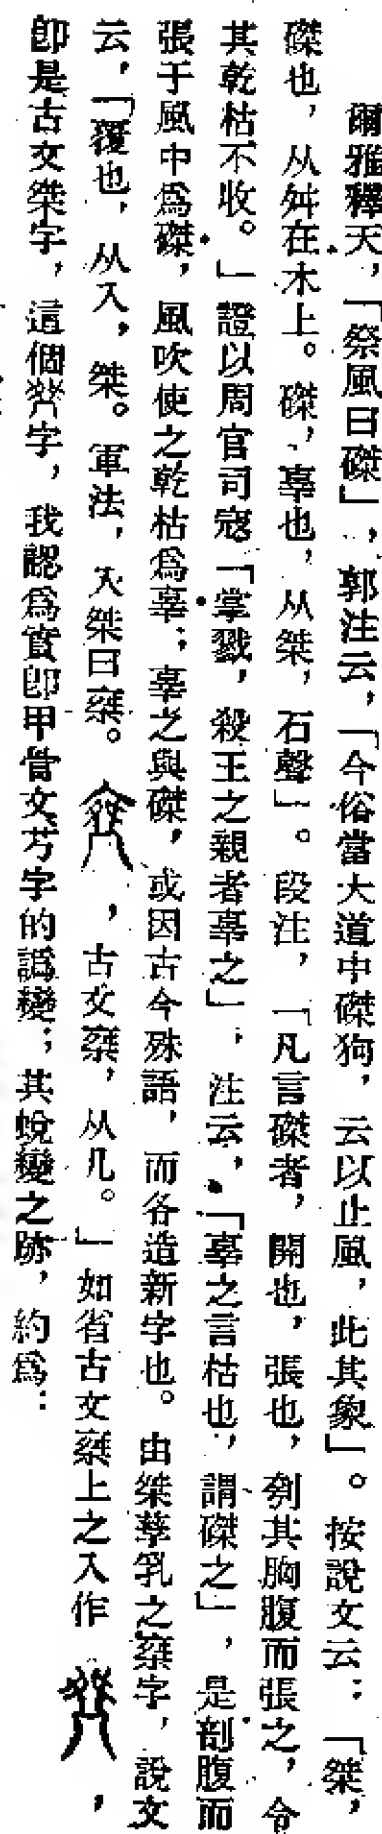 爾雅釋天,「祭風曰磔」,郭注云,「今俗當大道中磔狗,云以止風,此其象」。按說文云:「桀,
磔也,从舛在木上。磔,辜也,从桀,石聲」。段注,「凡言磔者,開也,張也,刳其胸腹而張之,令
其乾枯不收。」證以周官司寇「掌戮,殺王之親者辜之」,注云,「辜之言枯也,謂磔之」,是剖腹而
張于風中為磔,風吹使之乾枯為辜;辜之與磔,或因古今殊語,而各造新字也。由桀孳乳之椉字,說文
云,「覆也,从入,桀。軍法,入桀曰椉。,古文椉,从几。」如省古文椉上之入作,
即是古文桀字,這個字,我認為實即甲骨文字的譌變;其蛻變之跡,約為: